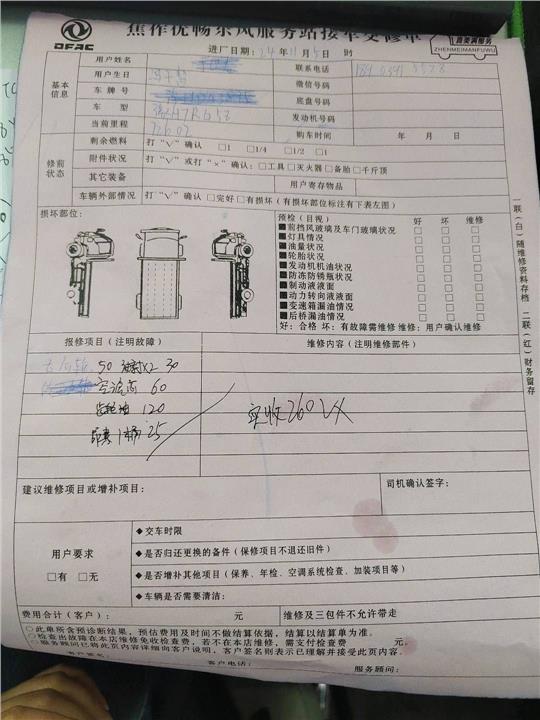 焦作优畅东风服务站接车交修单
DFAC
真美满服务
ZHENMEIMANFUWU
进厂日期：24年11月5日 时
基本信息
用户姓名
联系电话
用户生日
微信号码
车牌号
底盘号码
车 型
发动机号码
当前里程
购车时间 年 月 日
修前状态
剩余燃料 打“√”确认 □1 □1/4 □1/2 □1
附件状况 打“√”或打“×”确认：□工具□灭火器□备胎□千斤顶
其它装备
用户寄存物品
车辆外部情况 打“√”确认 □完好□有损坏（有损坏部位标注有下表左图）
损坏部位：
预检（目视） 好 坏 维修
■前挡风玻璃及车门玻璃状况 □ □ □
■灯具情况 □ □ □
■油量状况 □ □ □
■轮胎状况 □ □ □
■发动机机油状况 □ □ □
■防冻防锈瓶状况 □ □ □
■制动液液面 □ □ □
■动力转向液液面 □ □ □
■变速箱漏油情况 □ □ □
■后桥漏油情况 □ □ □
好：合格 坏：有故障需维修 维修：用户确认维修
一联（白）随维修资料存档 二联（红）财务留存
报修项目（注明故障）
维修内容（注明维修部件）
50
X2 30
空滤芯 60
120
25
实收260
建议维修项目或增补项目：
司机确认签字：
用户要求
□有 □无
◆交车时限
◆是否归还更换的备件（保修项目不退还旧件）
◆是否增补其他项目（保养、年检、空调系统检查、加装项目等）
◆车辆是否需要清洁：
费用合计（客户）： 元
维修及三包件不允许带走
○此单所含预诊断结果，预估费用及时间不做结算依据，结算以结算单为准。
○检查出故障在本店维修免收检查费，若不在本店维修，需支付检查费 元。
○服务顾问已将此页内容详细向客户说明，客户签名则表示已理解并接受此页内容。
客户签名：
客户电话：
服务顾问：